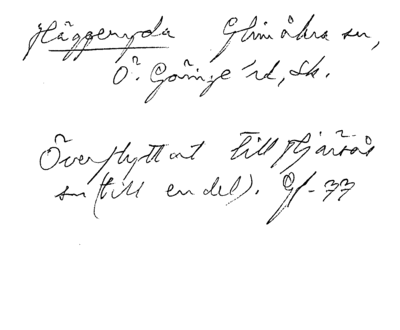 Häggeryda Glimåkra sn,
Ö. Göinge hd, Sk.
Överflyttat till Hjärsås
sn (till en del). Gf-77